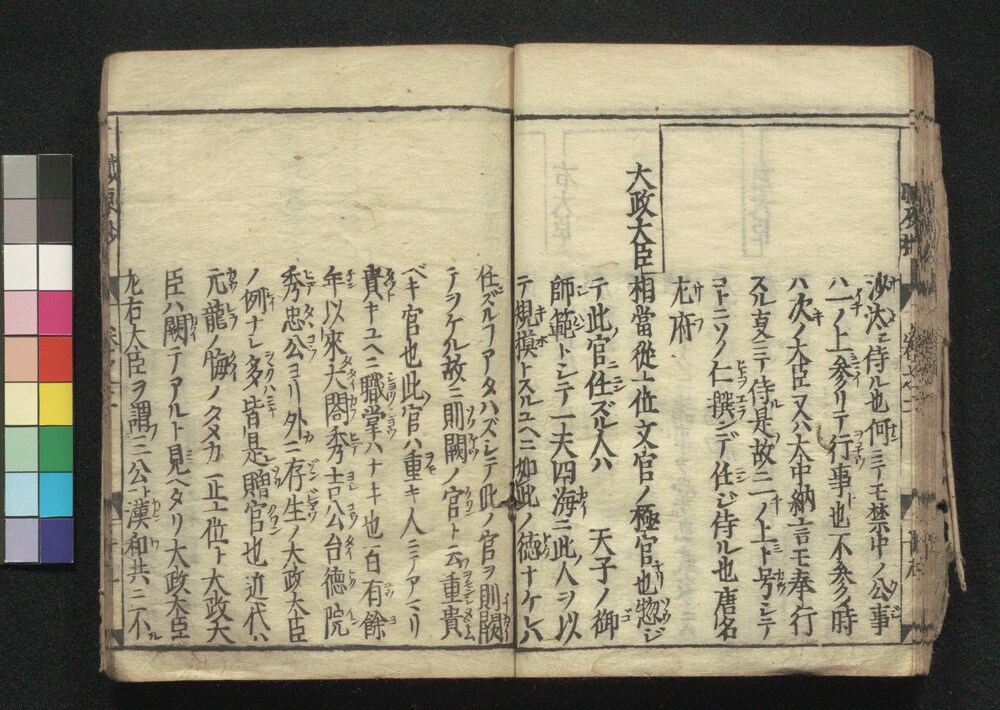 沙汰ニ侍ル也何ニテモ禁中ノ公事
ハ一ノ上参リテ行事也不参ノ時
ハ次ノ大臣又ハ大中納言モ奉行
スル夏ニテ侍是故ニ一ノ上ト号シテ
コトニソノ仁撰ンデ任ジ侍ル也唐名
左府
大政大臣 相當從一位文官ノ極官也惣ジ
テ此官ニ任ズル人ハ 天子ノ御
師範トシテ一天四海ニ此人ヲ以
テ規摸トスルユヘニ如此ノ徳ナケレハ
任ズルフアタハズシテ此ノ官ヲ則闕
テヲケル故ニ則闕ノ官ト云重貴
ベキ官也此官ハ重キ人ニテアマリ
貴キユヘニ職掌ハナキ也一百有餘
年以來大閤秀吉公台徳院
秀忠公ヨリ外ニ存生ノ大政大臣
ノ例ナシ多皆是贈官也近代ハ
元龍ノ悔ノタメカ正一位ト大政大
臣ハ闕テアルト見ヘタリ大政大臣
左右大臣ヲ謂三公ト漢和共ニ不